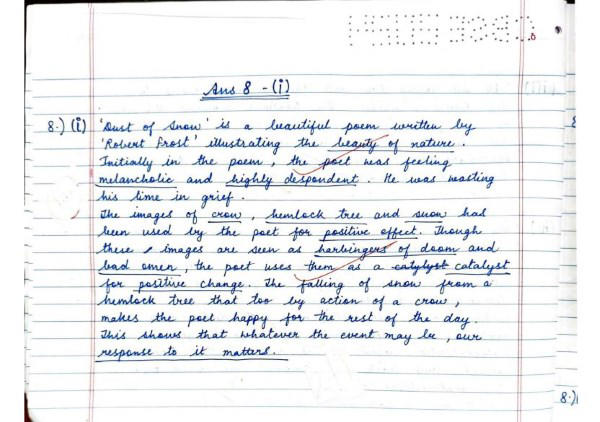 Ans 8 - (i)
8.) (i) 'Dust of Snow' is a beautiful poem written by
'Robert Frost' illustrating the beauty of nature.
Initially in the poem, the poet was feeling
melancholic and highly despondent. He was wasting
his time in grief.
The images of crow, hemlock tree and snow has
been used by the poet for positive effect. Though
these images are seen as harbingers of doom and
bad omen, the poet uses them as a catylyst catalyst
for positive change. The falling of snow from a
hemlock tree that too by action of a crow,
makes the poet happy for the rest of the day.
This shows that whatever the event may be, our
response to it matters.
8.)